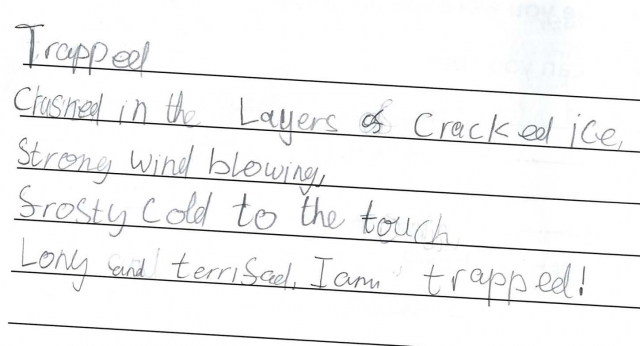 Trapped
Crushed in the Layers of Cracked ice,
Strong wind blowing,
frosty cold to the touch.
Lony and terrifael, I am trapped!